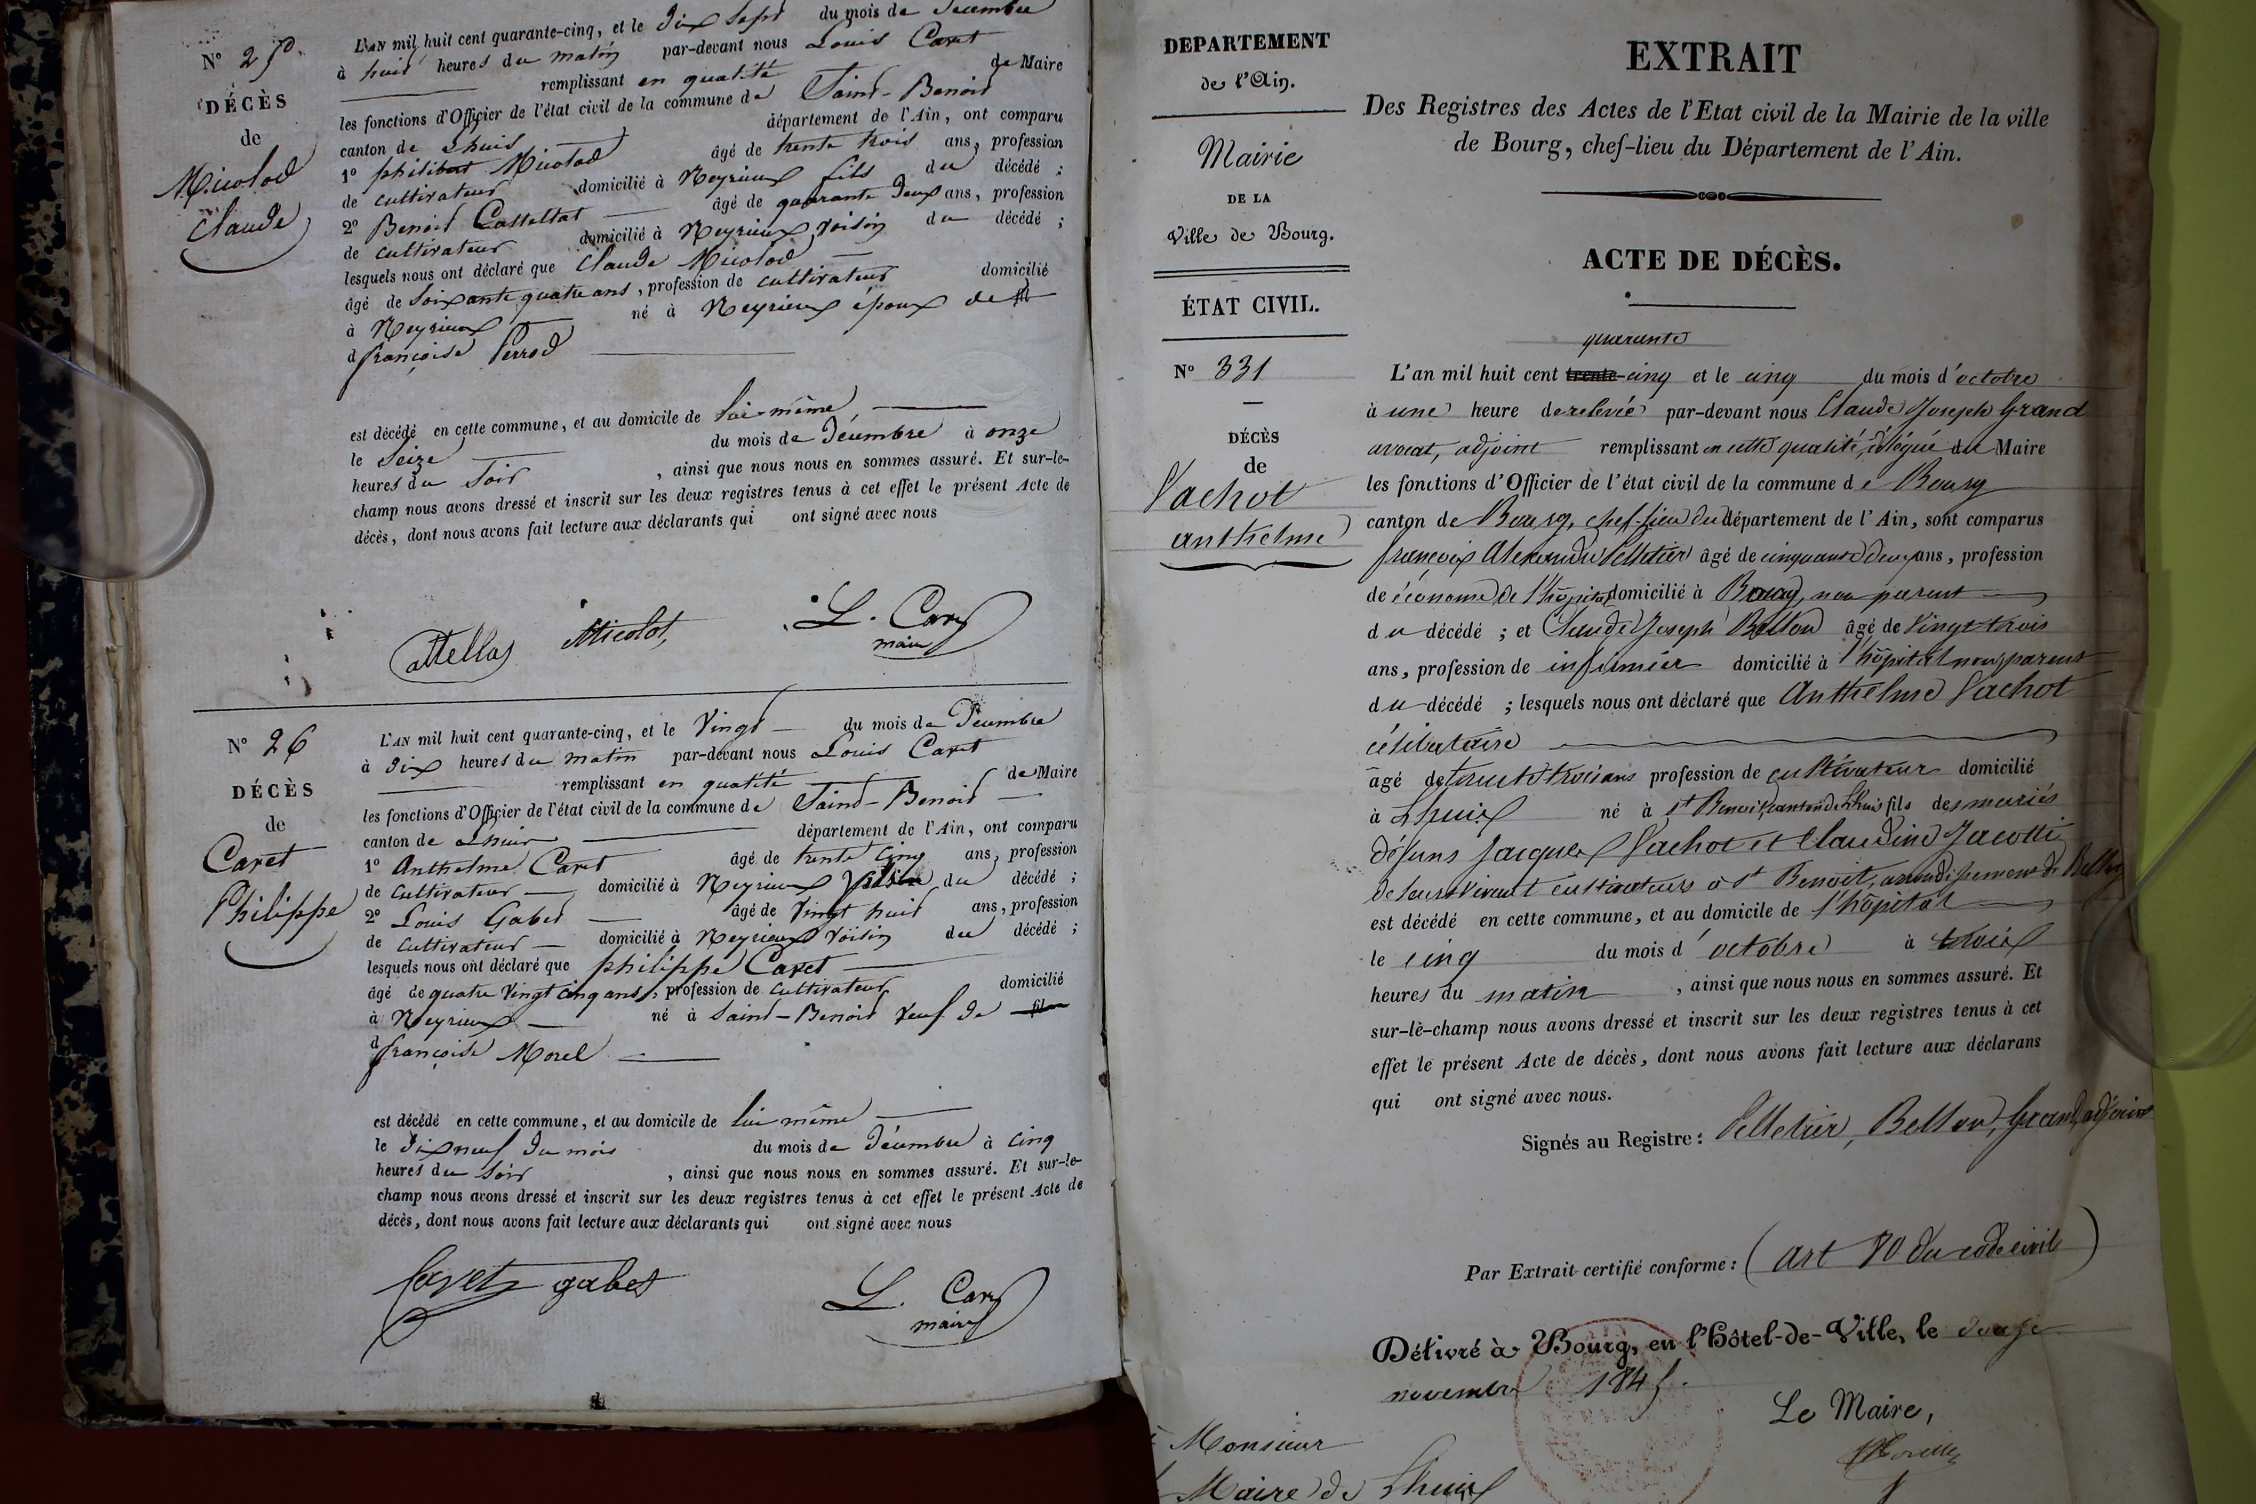 N° 25
DÉCÈS
de
Micolod
Claude
L'AN mil huit cent quarante-cinq, et le dix sept du mois de décembre
à huit heures du matin par-devant nous Louis Caret
remplissant en qualité de Maire
les fonctions d'Officier de l'état civil de la commune de Saint-Benoit
canton de Lhuis département de l'Ain, ont comparu
1° philibert Micolod âgé de trente trois ans, profession
de cultivateur domicilié à Neyrieux fils du décédé ;
2° Benoit Cattellat âgé de quarante deux ans, profession
de cultivateur domicilié à Neyrieux voisin du décédé ;
lesquels nous ont déclaré que Claude Micolod
âgé de soixante quatre ans, profession de cultivateur domicilié
à Neyrieux né à Neyrieux époux de fil
d françoise Perrod
est décédé en cette commune, et au domicile de lui-même
le seize du mois de décembre à onze
heures du soir , ainsi que nous nous en sommes assuré. Et sur-le-
champ nous avons dressé et inscrit sur les deux registres tenus à cet effet le présent Acte de
décès, dont nous avons fait lecture aux déclarants qui ont signé avec nous
Micolot, L. Caret
maire
N° 26
DÉCÈS
de
Caret
Philippe
L'AN mil huit cent quarante-cinq, et le vingt du mois de Décembre
à dix heures du matin par-devant nous Louis Caret
remplissant en qualité de Maire
les fonctions d'Officier de l'état civil de la commune de Saint-Benoit
canton de Lhuis département de l'Ain, ont comparu
1° Anthelme Caret âgé de trente cinq ans, profession
de cultivateur domicilié à Neyrieux voisin du décédé ;
2° Louis Gabet âgé de vingt huit ans, profession
de cultivateur domicilié à Neyrieux voisin du décédé ;
lesquels nous ont déclaré que philippe Caret
âgé de quatre vingt cinq ans, profession de cultivateur domicilié
à Neyrieux né à Saint-Benoit veuf de fil
d françoise Morel
est décédé en cette commune, et au domicile de lui même
le dix neuf du mois du mois de décembre à cinq
heures du soir , ainsi que nous nous en sommes assuré. Et sur-le-
champ nous avons dressé et inscrit sur les deux registres tenus à cet effet le présent Acte de
décès, dont nous avons fait lecture aux déclarants qui ont signé avec nous
Caret gabet L. Caret
maire
DEPARTEMENT
de l'Ain.
Mairie
DE LA
Ville de Bourg.
ÉTAT CIVIL.
N° 331
DÉCÈS
de
Vachot
anthelme
EXTRAIT
Des Registres des Actes de l'Etat civil de la Mairie de la ville
de Bourg, chef-lieu du Département de l'Ain.
ACTE DE DÉCÈS.
quarante
L'an mil huit cent trente-cinq et le cinq du mois d'octobre
à une heure de relevée par-devant nous Claude Joseph Grand
avocat, adjoint remplissant en cette qualité, délégué du Maire
les fonctions d'Officier de l'état civil de la commune de Bourg
canton de Bourg, chef-lieu du département de l'Ain, sont comparus
françois Alexandre Pelletier âgé de cinquante deux ans, profession
de économe de l'hôpital domicilié à Bourg, non parent
du décédé ; et Claude Joseph Bellon âgé de vingt trois
ans, profession de infirmier domicilié à l'hôpital non parent
du décédé ; lesquels nous ont déclaré que Anthelme Vachot
célibataire
âgé de trente trois ans profession de cultivateur domicilié
à Lhuis né à St Benoit, canton de Lhuis fils des mariés
défuns Jacques Vachot et Claudine Jacottin
de leur vivant cultivateurs à St Benoit, arrondissement de Belley
est décédé en cette commune, et au domicile de l'hôpital
le cinq du mois d'octobre à trois
heures du matin , ainsi que nous nous en sommes assuré. Et
sur-lè-champ nous avons dressé et inscrit sur les deux registres tenus à cet
effet le présent Acte de décès, dont nous avons fait lecture aux déclarans
qui ont signé avec nous.
Signés au Registre : Pelletier, Bellon, Grand, adjoint
Par Extrait certifié conforme : (art 80 du code civil)
Délivré à Bourg, en l'Hôtel-de-Ville, le douze
novembre 1845.
Le Maire,
Monsieur
Maire de Lhuis